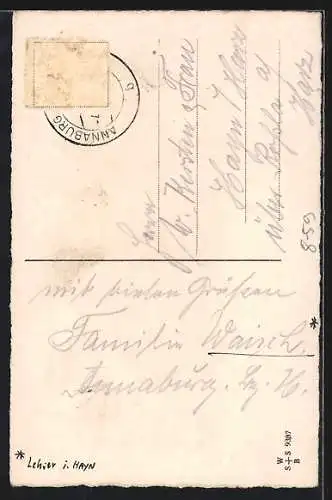 ANNABURG
Herrn
W. Kersten & Frau
Hayn / Harz
über Roßla a/
Harz
8-59
mit vielen Grüßen
Familie Waisch.
Annaburg. Bz. H.
*
* Lehrer i. HAYN
W
S+S 9307
B